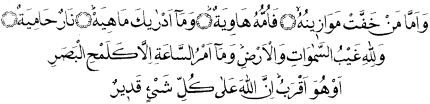 وَاَمَّا مَنْ خَفَّتْ مَوَازٖينُهُ ۝ فَاُمُّهُ هَاوِيَةٌ ۝ وَمَٓا اَدْرٰيكَ مَاهِيَهْ ۝ نَارٌ حَامِيَةٌ ۝
وَلِلّٰهِ غَيْبُ السَّمٰوَاتِ وَالْاَرْضِ وَمَٓا اَمْرُ السَّاعَةِ اِلَّا كَلَمْحِ الْبَصَرِ
اَوْ هُوَ اَقْرَبُ اِنَّ اللّٰهَ عَلٰى كُلِّ شَيْءٍ قَدٖيرٌ